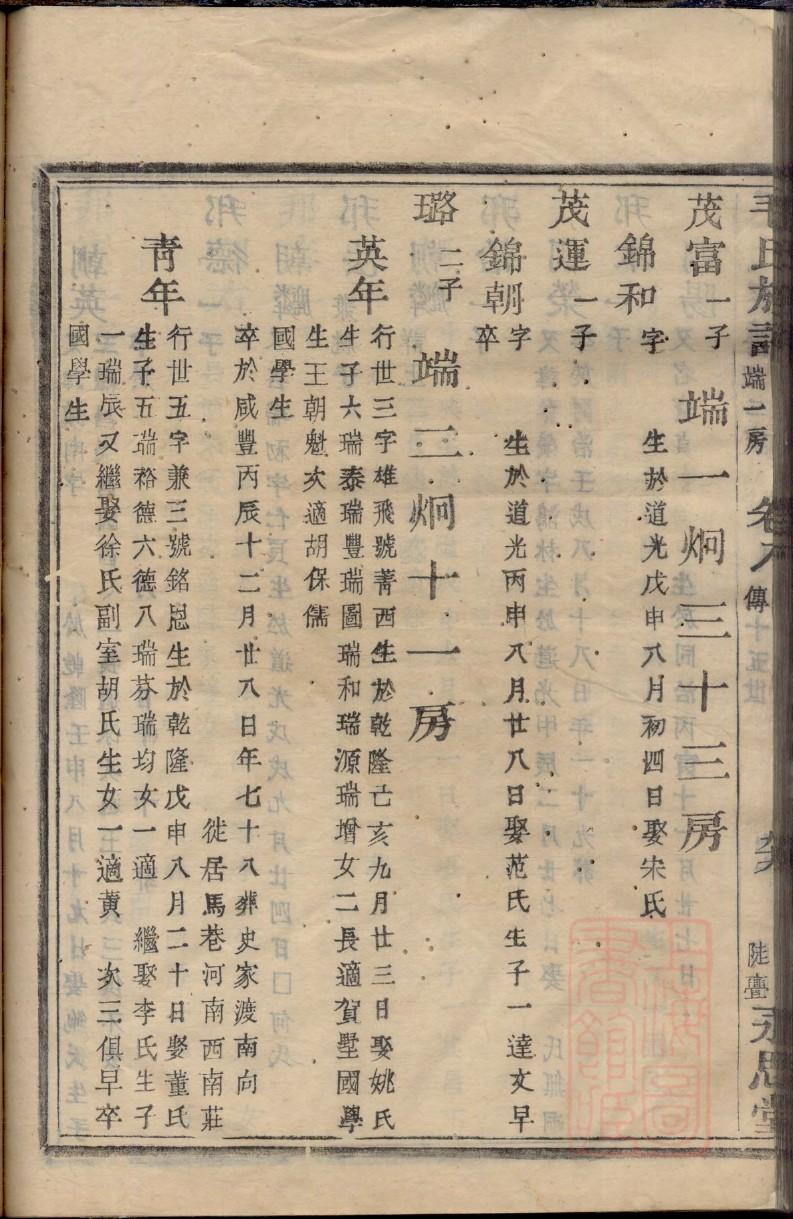 毛氏族譜 端一房 卷 傳 陡亹 永思堂
茂富 一子 端一炯三十三房
錦和 字 生於道光戊申八月初四日娶宋氏
茂運 一子
錦朝 字 生於道光丙申八月廿八日娶范氏生子一達文早
卒
璐 二子 端三炯十一房
英年 行世三字雄飛號菁西生於乾隆己亥九月廿三日娶姚氏
生子六瑞泰瑞豐瑞圖瑞和瑞源瑞增女二長適賀墅國學
生王朝魁次適胡保儒
國學生
卒於咸豐丙辰十二月廿八日年七十八葬史家渡南向
徙居馬巷河南西南莊
青年 行世五字兼三號銘恩生於乾隆戊申八月二十日娶董氏
生子五瑞裕德六德八瑞芬瑞均女一適 繼娶李氏生子
一瑞辰又繼娶徐氏副室胡氏生女一適黃 次三俱早卒
國學生